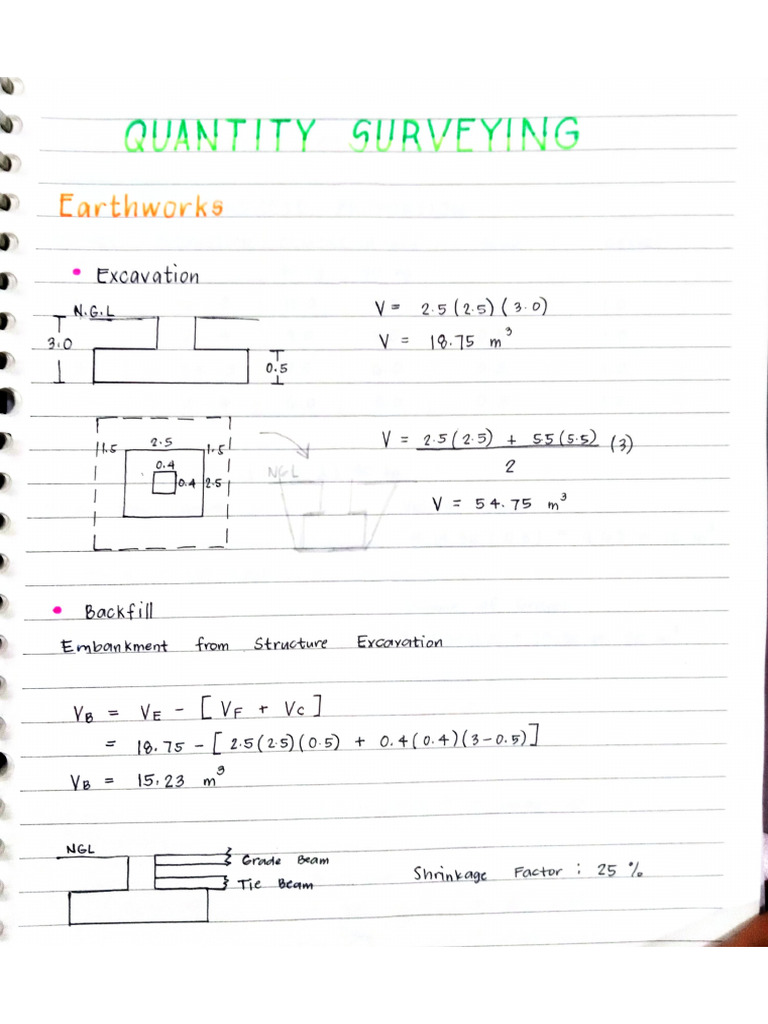 QUANTITY SURVEYING
Earthworks
• Excavation
N.G.L
3.0
0.5
V = 2.5(2.5)(3.0)
V = 18.75 m³
1.5
2.5
1.5
0.4
0.4
2.5
NGL
V = 2.5(2.5) + 5.5(5.5) (3)
2
V = 54.75 m³
• Backfill
Embankment from Structure Excavation
VB = VE - [VF + VC]
= 18.75 - [2.5(2.5)(0.5) + 0.4(0.4)(3-0.5)]
VB = 15.23 m³
NGL
Grade Beam
Tie Beam
Shrinkage Factor : 25 %